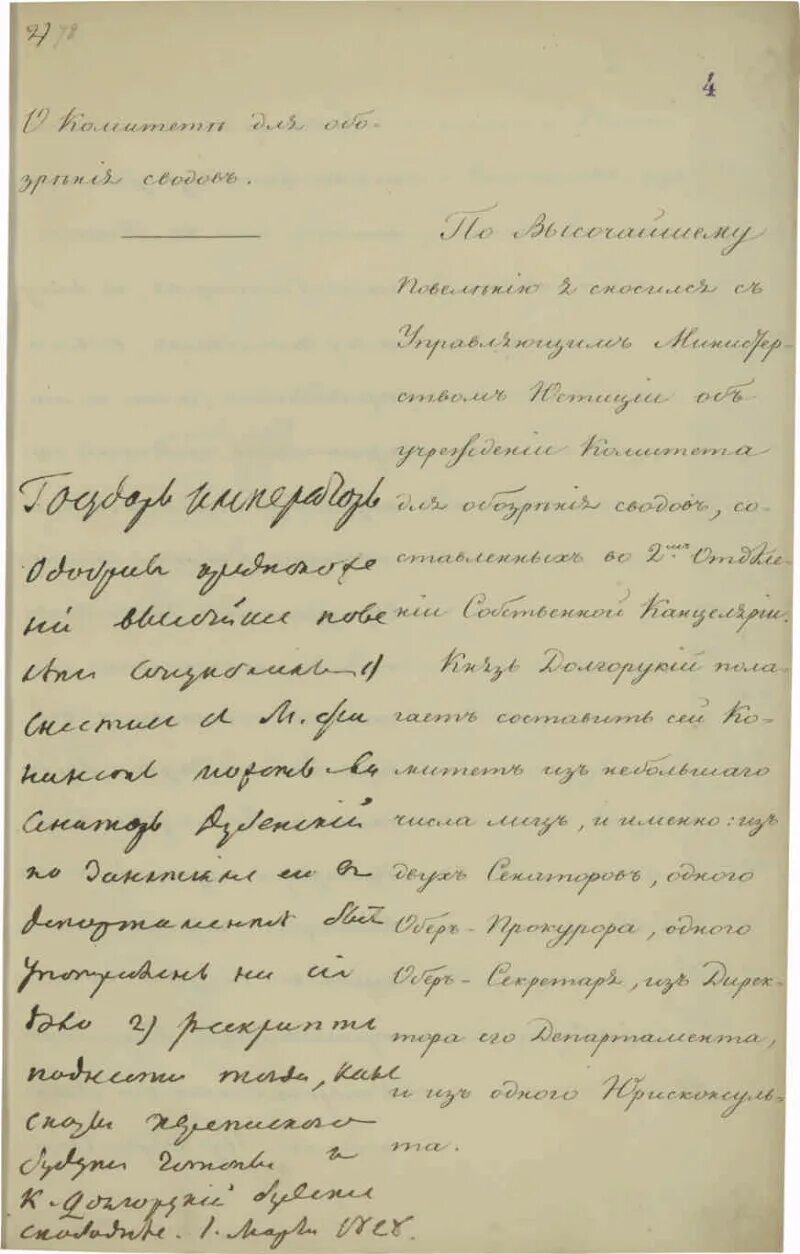 2) 78
4
О Комитетѣ для обо-
зрѣнія сводовъ.
По Высочайшему
Повелѣнію я сносился съ
Управляющимъ Министер-
ствомъ Юстиціи объ
учрежденіи Комитета
для обозрѣнія сводовъ, со-
ставленныхъ во 2мъ Отдѣле-
ніи Собственной Канцеляріи.
Князь Долгорукій пола-
гаетъ составить сей Ко-
митетъ изъ небольшаго
числа лицъ, и именно: изъ
двухъ Сенаторовъ, одного
Оберъ-Прокурора, одного
Оберъ-Секретаря, изъ Дирек-
тора его Департамента,
и изъ одного Юрисконсуль-
та.
Государь Императоръ
одобривъ предположе
ни высочайше пове
лѣть
снестись с М. Фи
нансовъ можетъ ли
Сенаторъ Дубенскій
по занятіямъ его в
департаментѣ быть
употребленъ на сіе
дѣло 2) рескриптъ
поднести тогда, какъ
своды
будутъ готовы и
К. Долгорукій будетъ
1. Марта 1828.